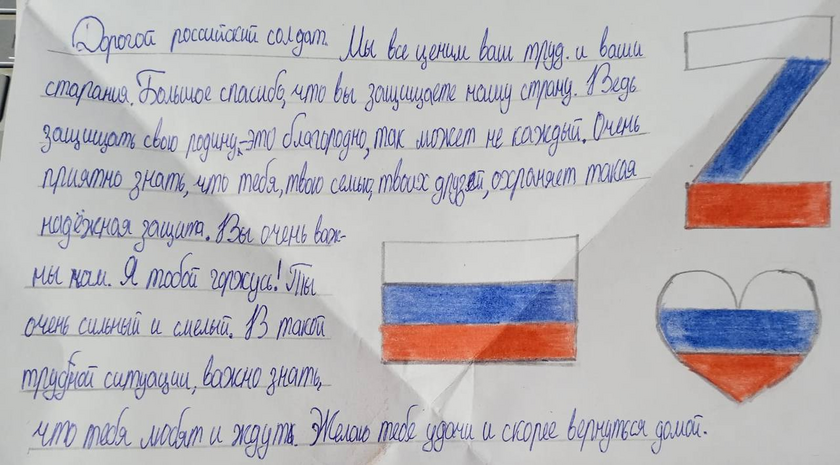 Дорогой российский солдат. Мы все ценим ваш труд. и ваши
старания. Большое спасибо, что вы защищаете нашу страну. Ведь
защищать свою родину,-это благородно, так может не каждый. Очень
приятно знать, что тебя, твою семью, твоих друзей, охраняет такая
надёжная защита. Вы очень важ-
ны нам. Я тобой горжусь! Ты
очень сильный и смелый. В такой
трудной ситуации, важно знать,
что тебя любят и ждуть. Желаю тебе удачи и скорее вернуться домой.
Z